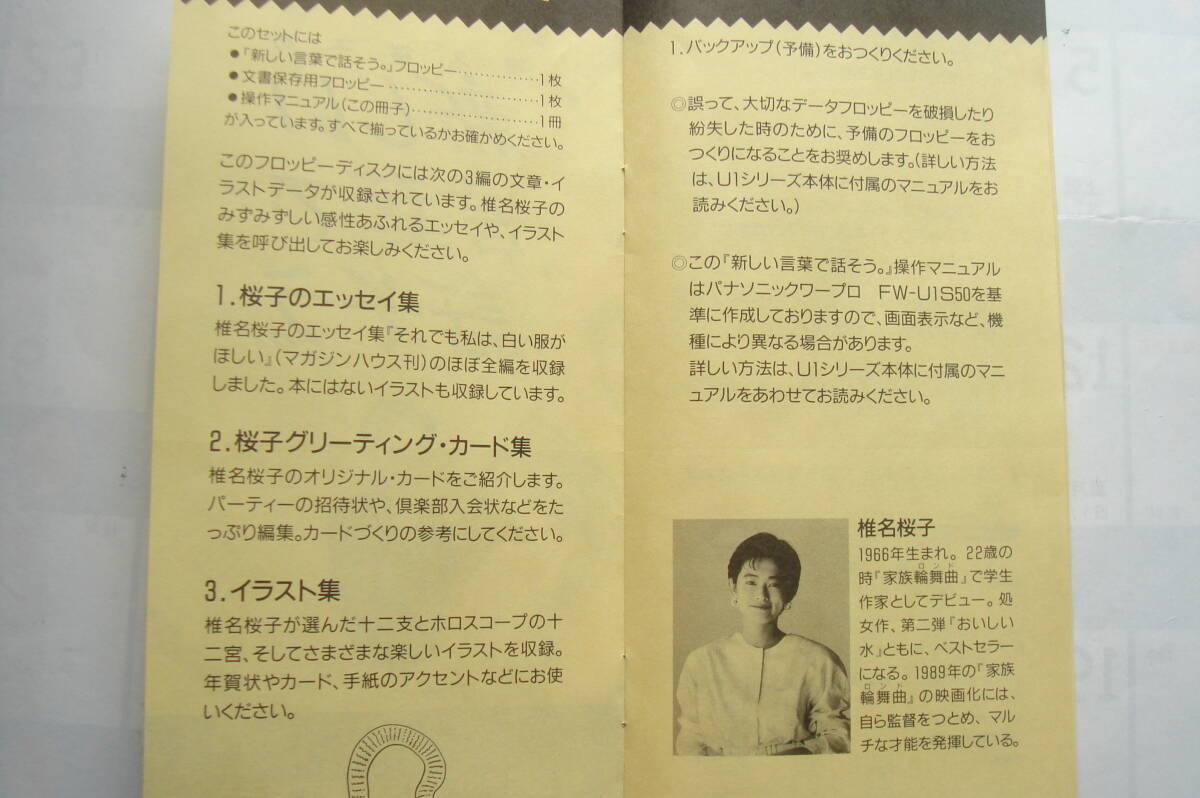 このセットには
●「新しい言葉で話そう。」フロッピー……………1枚
●文書保存用フロッピー……………………1枚
●操作マニュアル(この冊子)………………1冊
が入っています。すべて揃っているかお確かめください。
このフロッピーディスクには次の3編の文章・イ
ラストデータが収録されています。椎名桜子の
みずみずしい感性あふれるエッセイや、イラスト
集を呼び出してお楽しみください。
1.桜子のエッセイ集
椎名桜子のエッセイ集『それでも私は、白い服が
ほしい』(マガジンハウス刊)のほぼ全編を収録
しました。本にはないイラストも収録しています。
2.桜子グリーティング・カード集
椎名桜子のオリジナル・カードをご紹介します。
パーティーの招待状や、倶楽部入会状などをた
っぷり編集。カードづくりの参考にしてください。
3.イラスト集
椎名桜子が選んだ十二支とホロスコープの十
二宮、そしてさまざまな楽しいイラストを収録。
年賀状やカード、手紙のアクセントなどにお使
いください。
1.バックアップ(予備)をおつくりください。
◎誤って、大切なデータフロッピーを破損したり
紛失した時のために、予備のフロッピーをお
つくりになることをお奨めします。(詳しい方法
は、U1シリーズ本体に付属のマニュアルをお
読みください。)
◎この『新しい言葉で話そう。』操作マニュアル
はパナソニックワープロ　FW-U1S50を基
準に作成しておりますので、画面表示など、機
種により異なる場合があります。
詳しい方法は、U1シリーズ本体に付属のマニ
ュアルをあわせてお読みください。
椎名桜子
1966年生まれ。22歳の
時『家族輪舞曲』で学生
作家としてデビュー。処
女作、第二弾『おいしい
水』ともに、ベストセラー
になる。1989年の『家族
輪舞曲』の映画化には、
自ら監督をつとめ、マル
チな才能を発揮している。